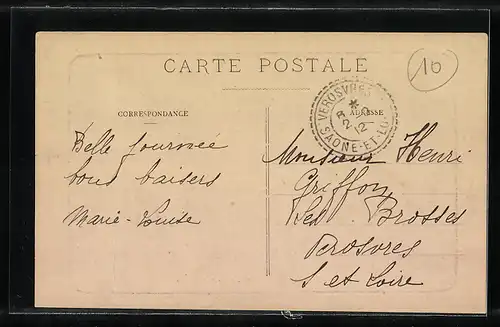 CARTE POSTALE
10
CORRESPONDANCE
ADRESSE
VEROSVRES
8 *
2 - 9
12
SAONE-ET-L
Belle journée
bons baisers
Marie-Louise
Monsieur Henri
Griffon
Les Brosses
Verosvres
S et Loire